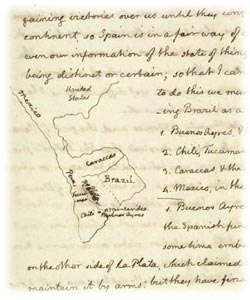 gaining victories over us until they con
continent, so Spain is in a fair way of
even our information of the state of thin
being distinct or certain; so that I ca
to do this we me
ing Brazil as a
1. Buenos Ayres,
2. Chili, Tucuma
3. Caraccas & the
4. Mexico, in the
1. Buenos Ayre
the Spanish fin
sometime emb
on the other side of La Plata, which claimed
maintain it by arms: but they have fine
Mexico
United
States
Caraccas
Brazil
Peru
Chili
Buenos Ayres